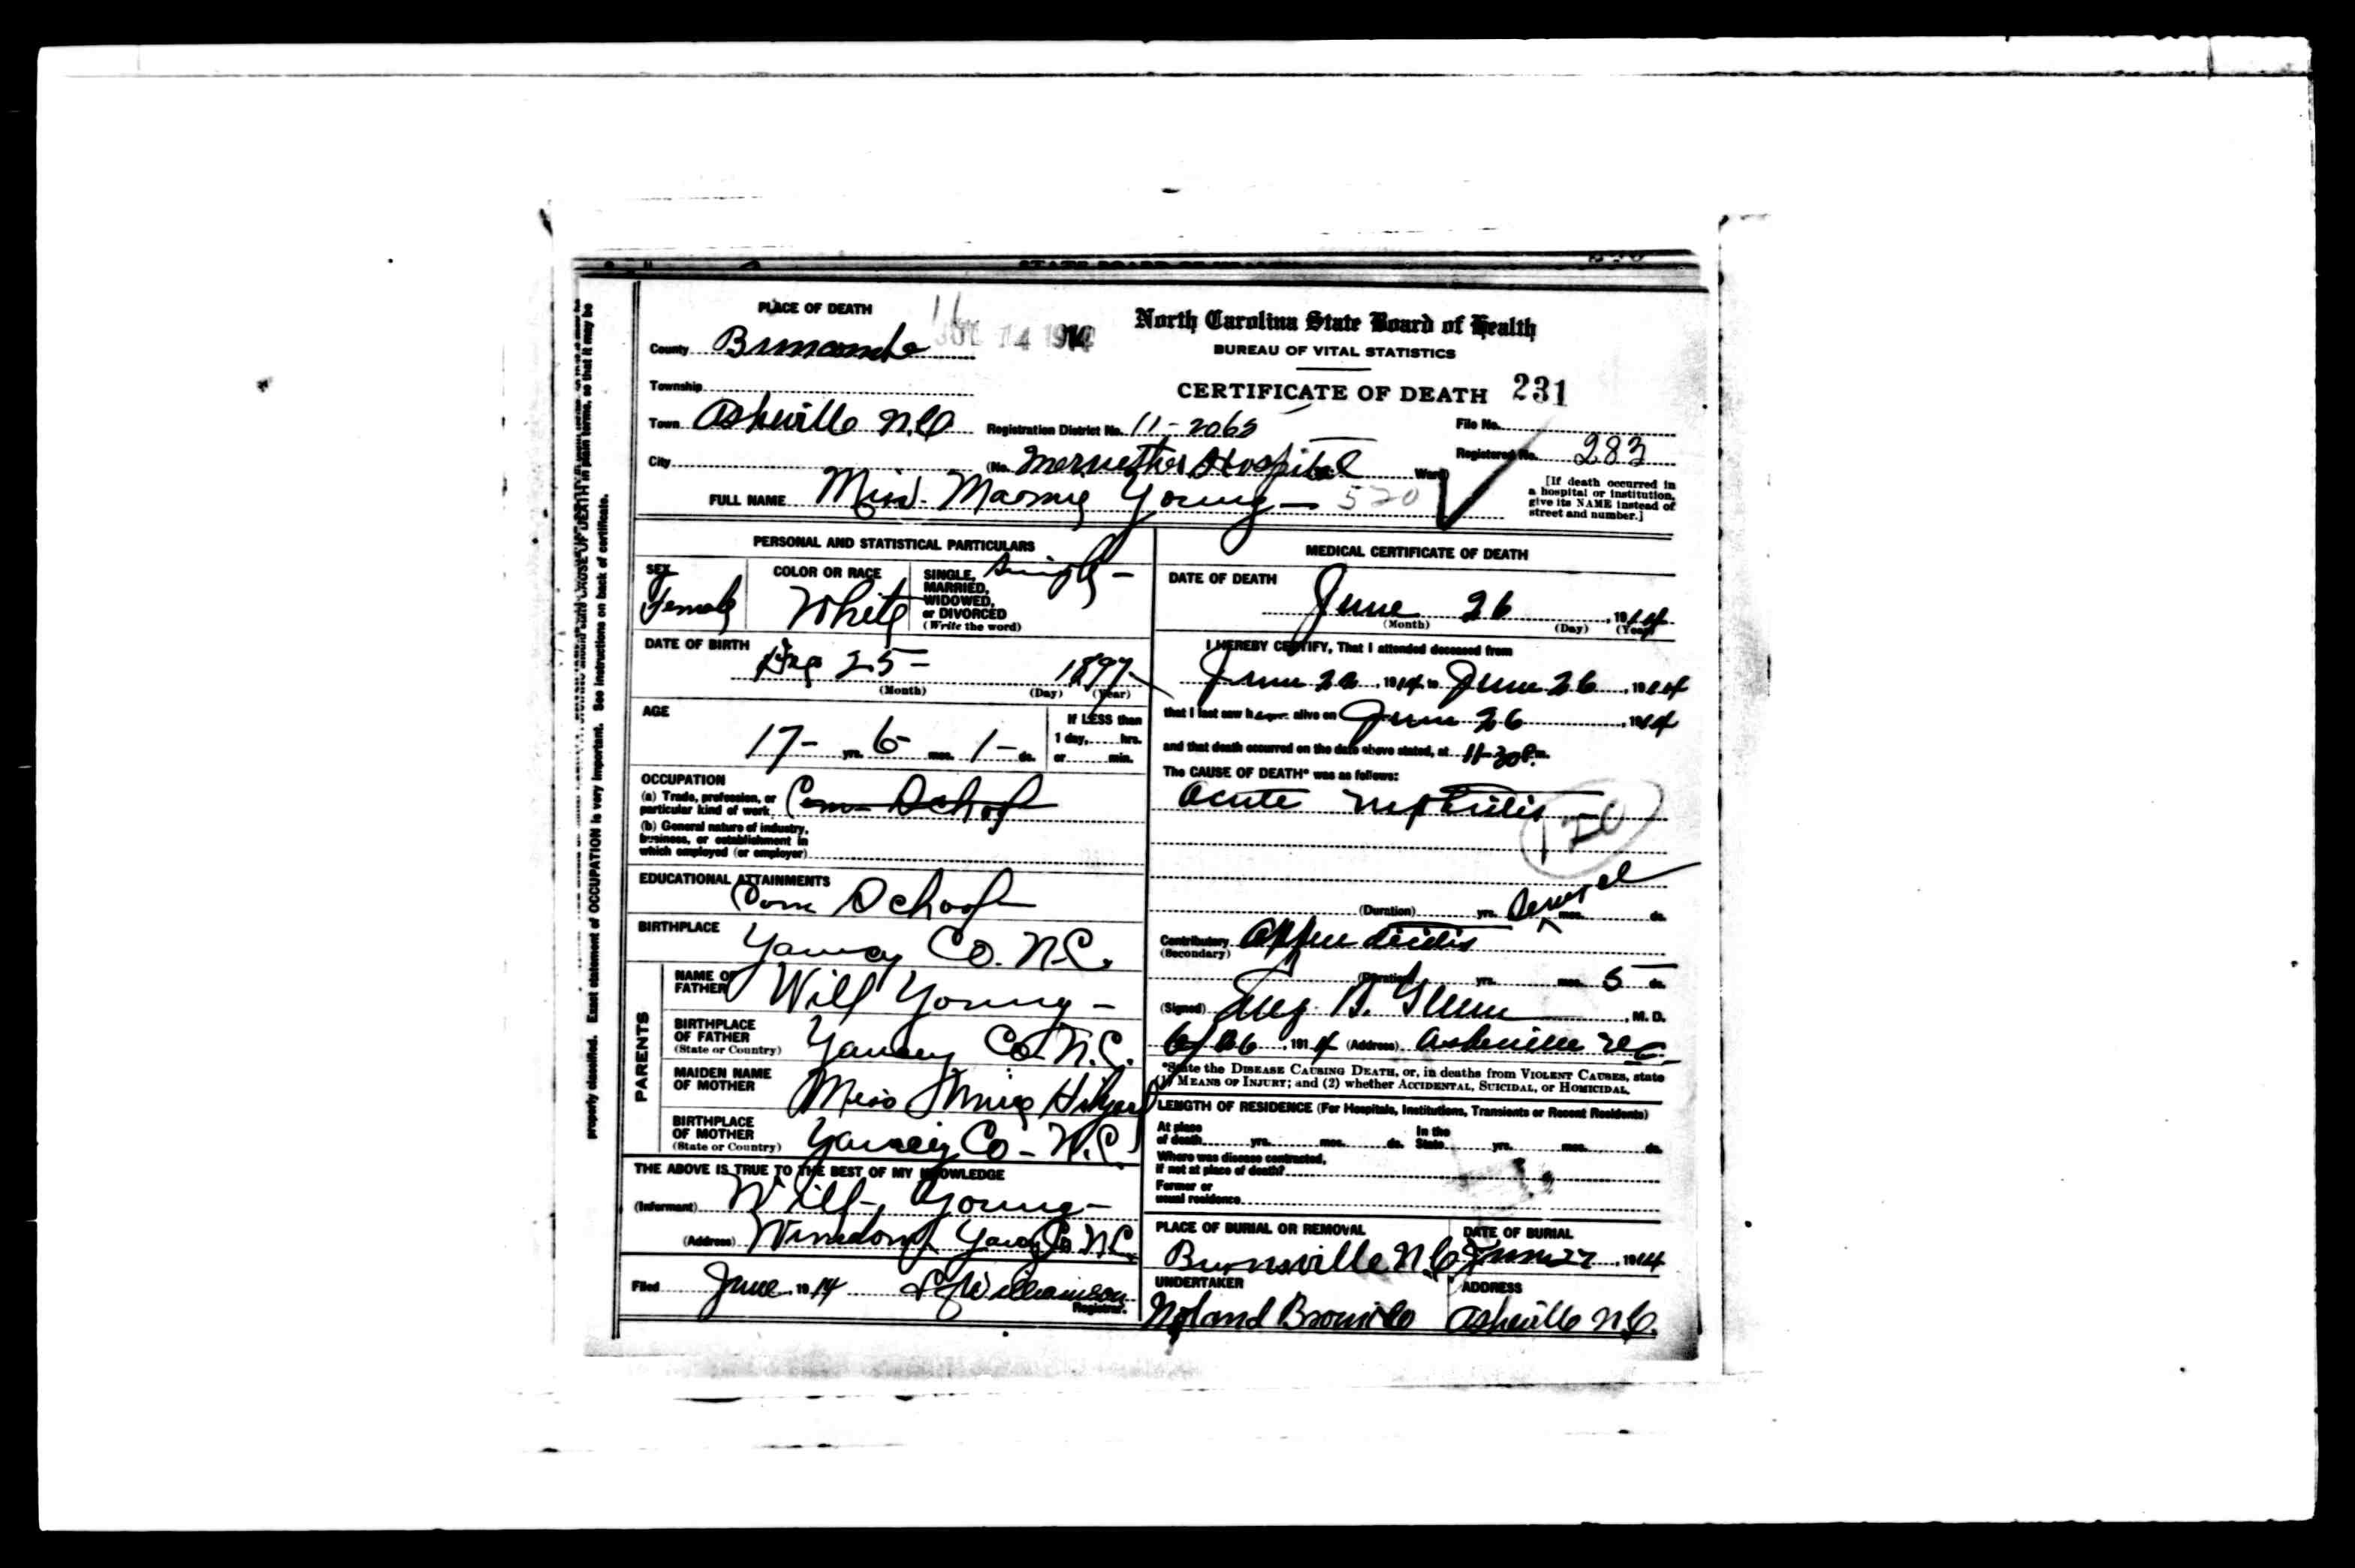 STATE BOARD OF HEALTH
PLACE OF DEATH
JUL 14 1914
North Carolina State Board of Health
County Buncombe
BUREAU OF VITAL STATISTICS
Township
CERTIFICATE OF DEATH 231
Town Asheville N.C. Registration District No. 11-2065 File No.
City (No. Meriwether Hospital Ward) Registered No. 283
FULL NAME Miss. Young — 520
[If death occurred in
a hospital or institution,
give its NAME instead of
street and number.]
PERSONAL AND STATISTICAL PARTICULARS
SEX Female
COLOR OR RACE White
SINGLE, MARRIED, WIDOWED, or DIVORCED (Write the word) Single -
DATE OF BIRTH 25 - 1897
(Month) (Day) (Year)
AGE 17- yrs. 6- mos. 1- ds.
If LESS than
1 day, hrs.
or min.
OCCUPATION
(a) Trade, profession, or
particular kind of work Com School
(b) General nature of industry,
business, or establishment in
which employed (or employer)
EDUCATIONAL ATTAINMENTS
Com School
BIRTHPLACE Yancey Co. N.C.
PARENTS
NAME OF FATHER Will Young -
BIRTHPLACE OF FATHER (State or Country) Yancey Co. N.C.
MAIDEN NAME OF MOTHER Miss
BIRTHPLACE OF MOTHER (State or Country) Yancey Co - N.C.
THE ABOVE IS TRUE TO THE BEST OF MY KNOWLEDGE
(Informant) Will Young -
(Address) Windom Yancy Co N.C.
Filed June 1914 Williamson
Registrar.
MEDICAL CERTIFICATE OF DEATH
DATE OF DEATH
June 26, 1914
(Month) (Day) (Year)
I HEREBY CERTIFY, That I attended deceased from
June 22, 1914 to June 26, 1914
that I last saw her alive on June 26, 1914
and that death occurred on the date above stated, at 11-30 P.m.
The CAUSE OF DEATH* was as follows:
Acute nephritis
120
(Duration) yrs. Several mos. ds.
Contributory Appendicitis
(Secondary)
(Duration) yrs. mos. 5 ds.
(Signed) Eug B. Glenn, M. D.
6/26, 1914 (Address) Asheville N.C.
*State the DISEASE CAUSING DEATH, or, in deaths from VIOLENT CAUSES, state
(1) MEANS OF INJURY; and (2) whether ACCIDENTAL, SUICIDAL, or HOMICIDAL.
LENGTH OF RESIDENCE (For Hospitals, Institutions, Transients or Recent Residents)
At place
of death yrs. mos. ds. In the State yrs. mos. ds.
Where was disease contracted,
if not at place of death?
Former or
usual residence
PLACE OF BURIAL OR REMOVAL DATE OF BURIAL
Burnsville N.C. June 27, 1914
UNDERTAKER ADDRESS
Noland Brown Co Asheville N.C.
properly classified. Exact statement of OCCUPATION is very important. See instructions on back of certificate.
CAUSE OF DEATH in plain terms, so that it may be